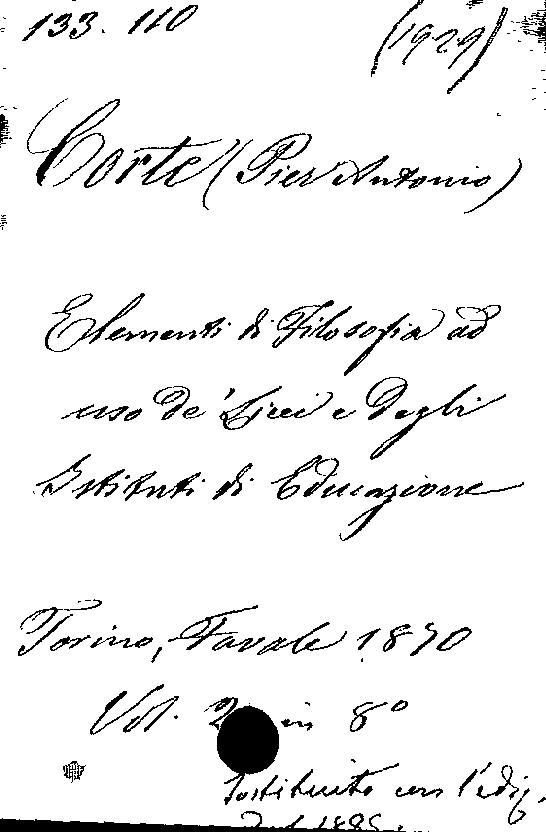 133. 110 (1929)
Corte (Pier Antonio)
Elementi di Filosofia ad
uso de' Licei e Degli
Istituti di Educazione
Torino, Favale 1870
Vol. 2 in 8º
Sostituito con l'ediz.